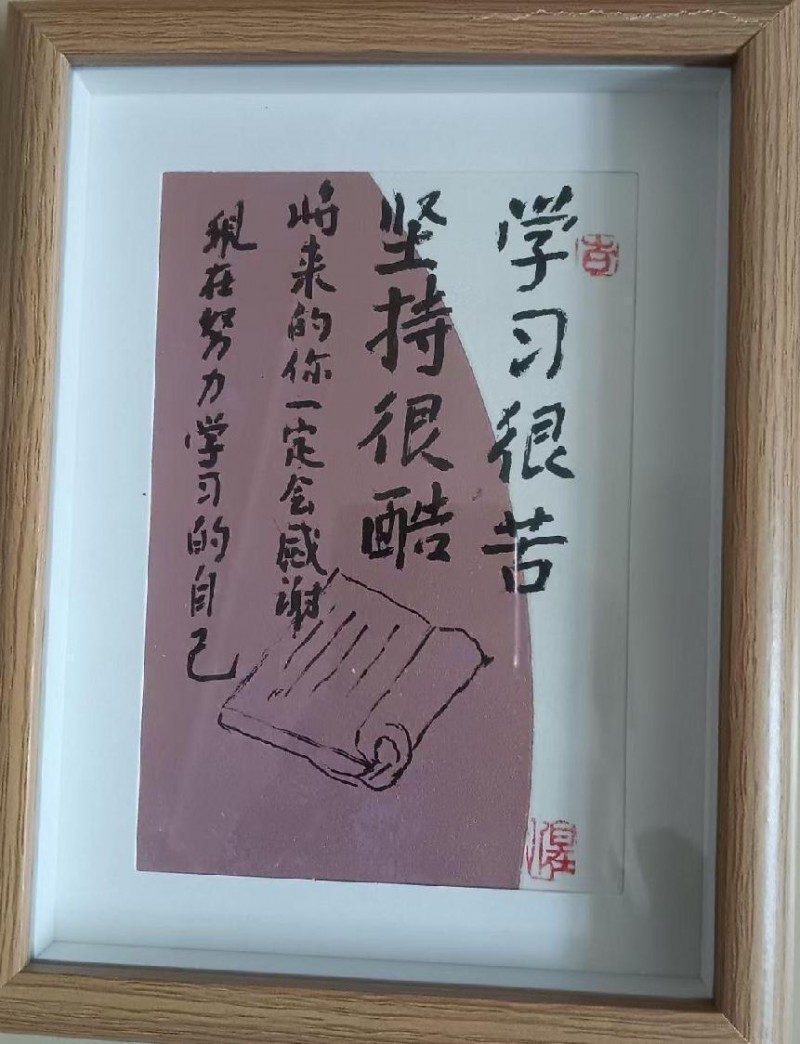 学习很苦
坚持很酷
将来的你一定会感谢
现在努力学习的自己
吉